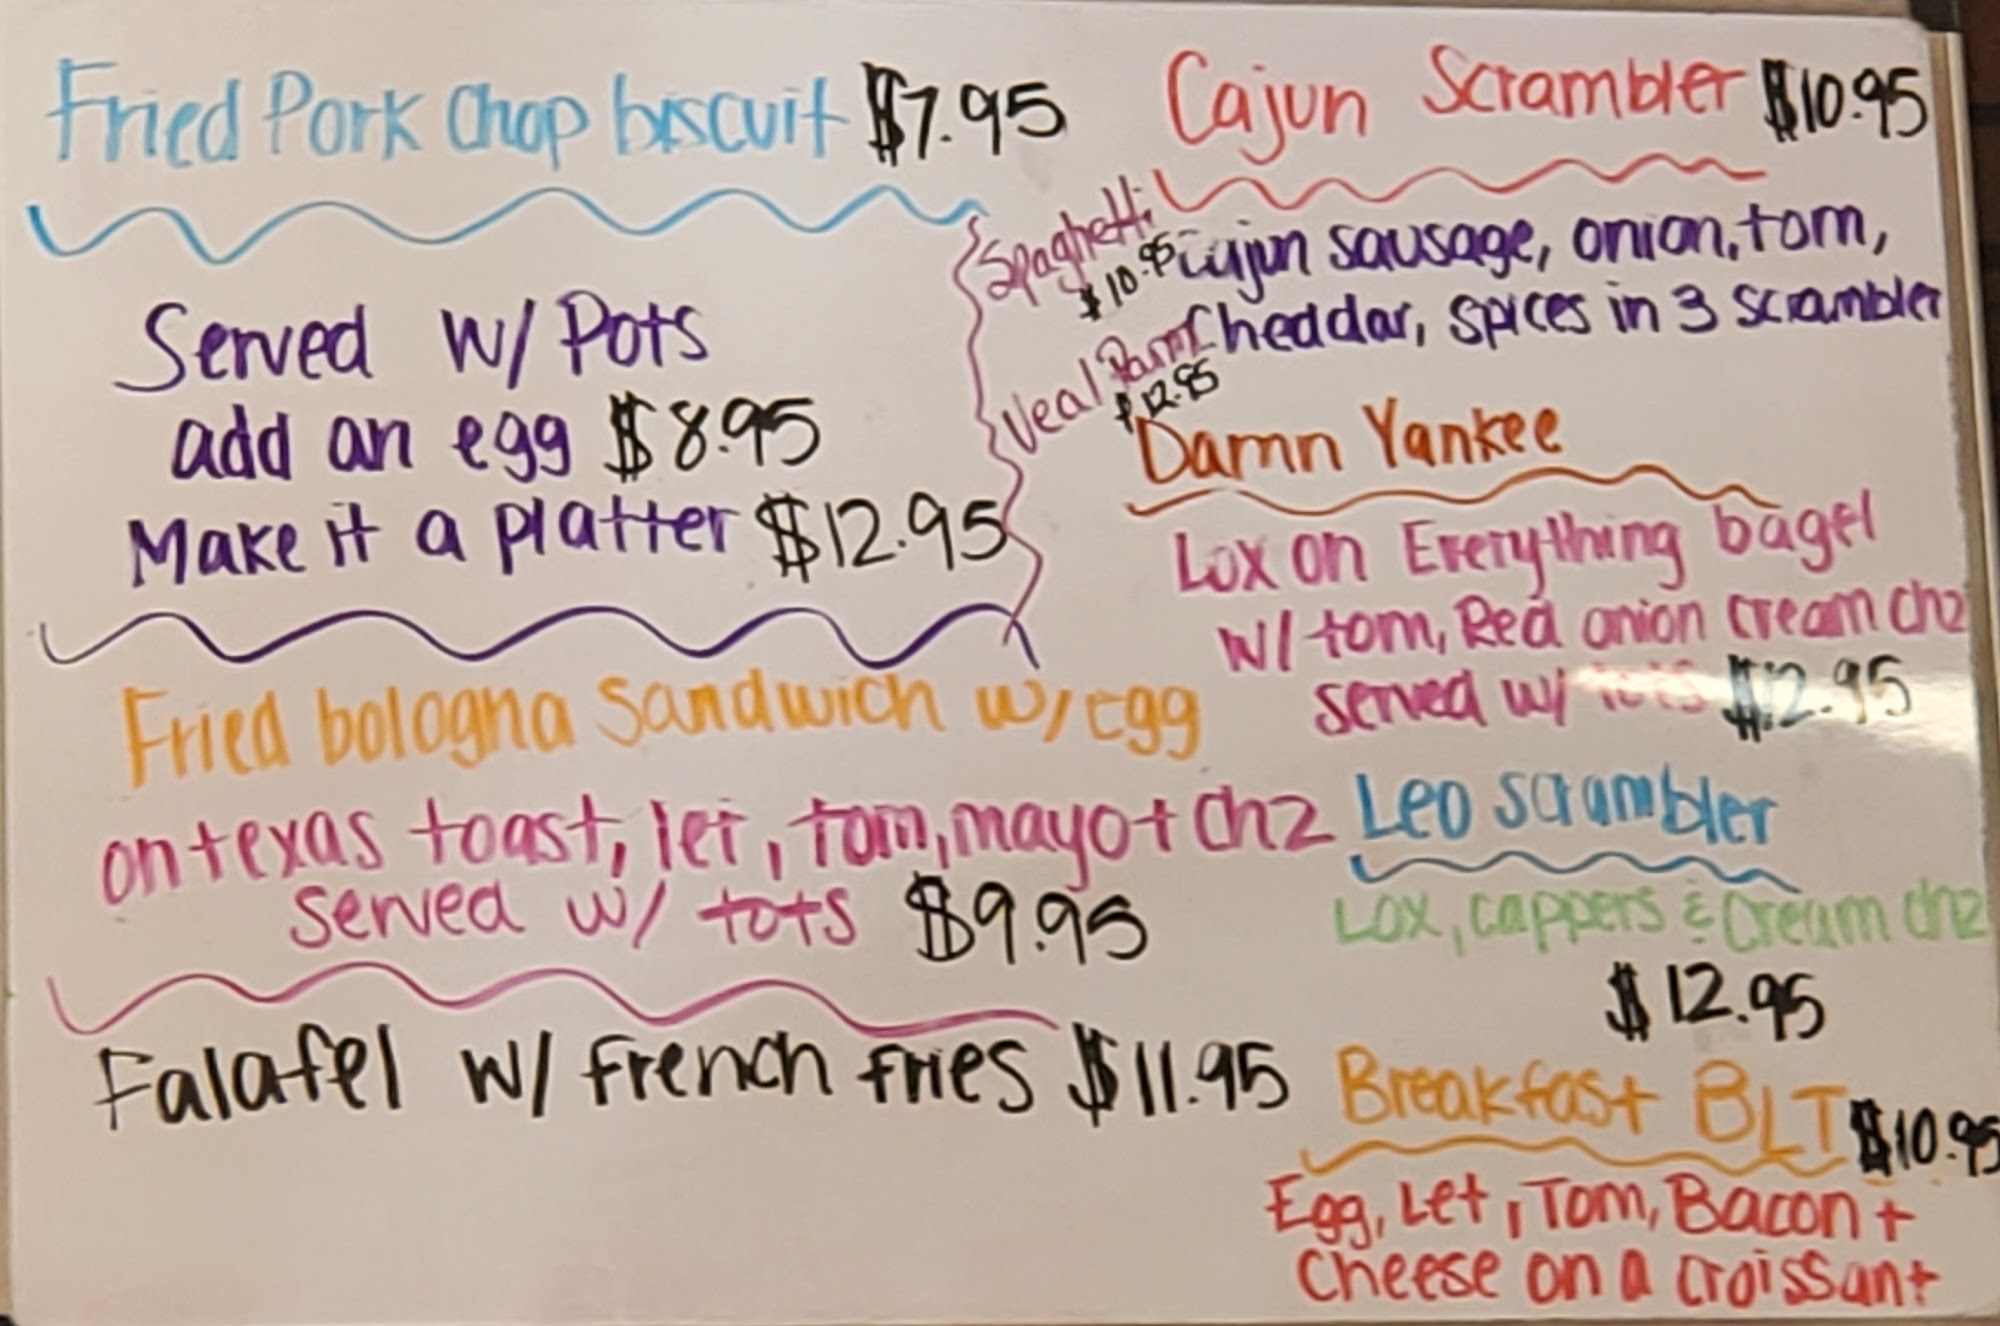 Fried Pork Chop biscuit $7.95
Served w/ Pots
add an egg $8.95
Make it a platter $12.95
Fried bologna Sandwich w/ egg
on texas toast, let, tom, mayo + chz
served w/ tots $9.95
Falafel w/ French fries $11.95
Spaghetti
$10.95
Veal Parm
$12.95
Cajun Scrambler $10.95
Cajun sausage, onion, tom,
Cheddar, spices in 3 scrambler
Damn Yankee
Lox on Everything bagel
w/ tom, Red onion cream chz
served w/ tots $12.95
Leo scrambler
Lox, cappers & cream chz
$12.95
Breakfast BLT $10.95
Egg, Let, Tom, Bacon +
Cheese on a croissant